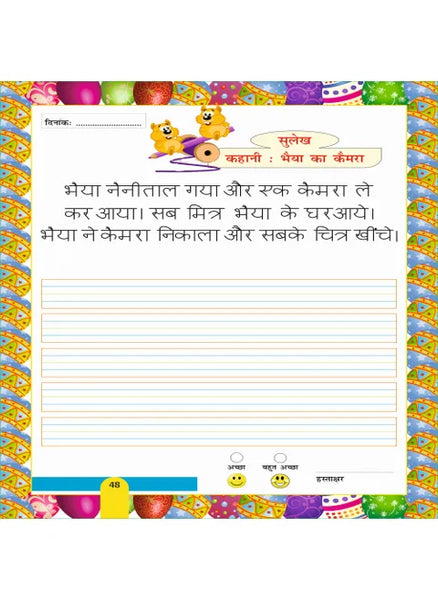 दिनांकः ............................
सुलेख
कहानी : भैया का कैमरा
भैया नैनीताल गया और एक कैमरा ले
कर आया। सब मित्र भैया के घरआये।
भैया ने कैमरा निकाला और सबके चित्र खींचे।
अच्छा बहुत अच्छा
हस्ताक्षर
48